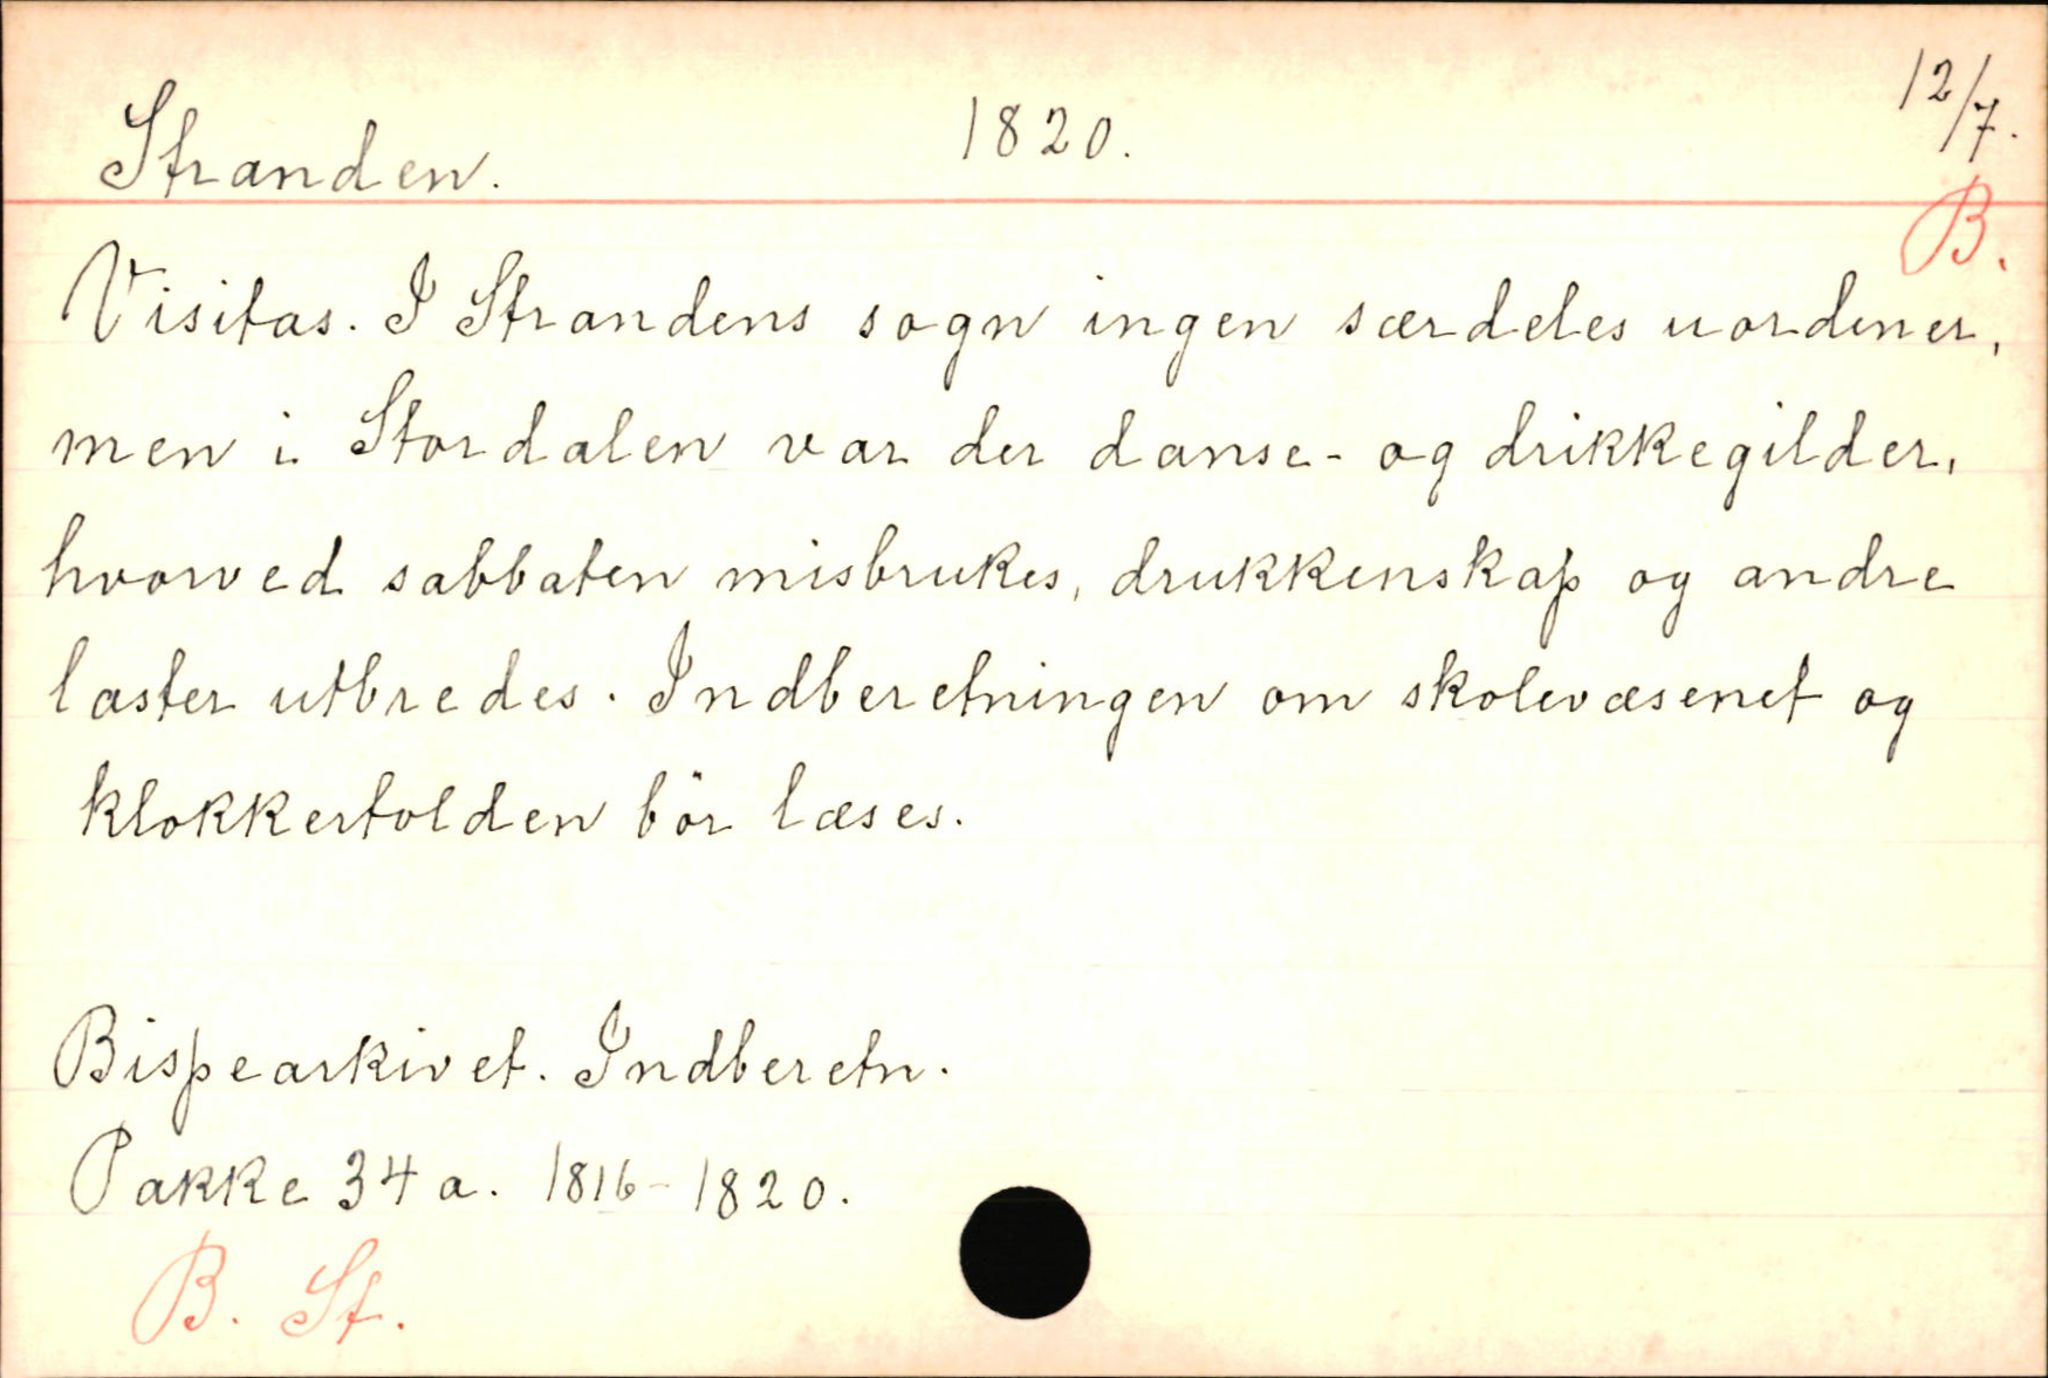 Stranden. 1820. 12/7.
B.
Visitas. I Strandens sogn ingen særdeles uordener,
men i Stordalen var der danse- og drikkegilder,
hvorved sabbaten misbrukes, drukkenskap og andre
laster utbredes. Indberetningen om skolevæsenet og
klokkertolden bör læses.
Bispearkivet. Indberetn.
Pakke 34 a. 1816-1820.
B. St.